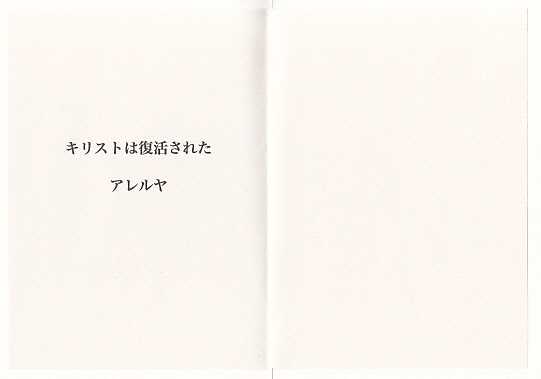 キリストは復活された
アレルヤ